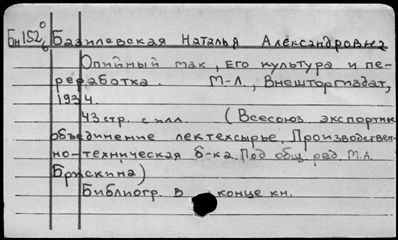 Бн152⁰₆ Базилевская Наталья Александровна
Опийный мак, его культура и пе-
реработка. М-Л., Внешторгиздат,
1934.
43 стр. с илл. (Всесоюз. экспортне
объединение лектехсырье. Производствен-
но-техническая б-ка. Под общ. ред. М.А.
Брискина)
Библиогр. в конце кн.